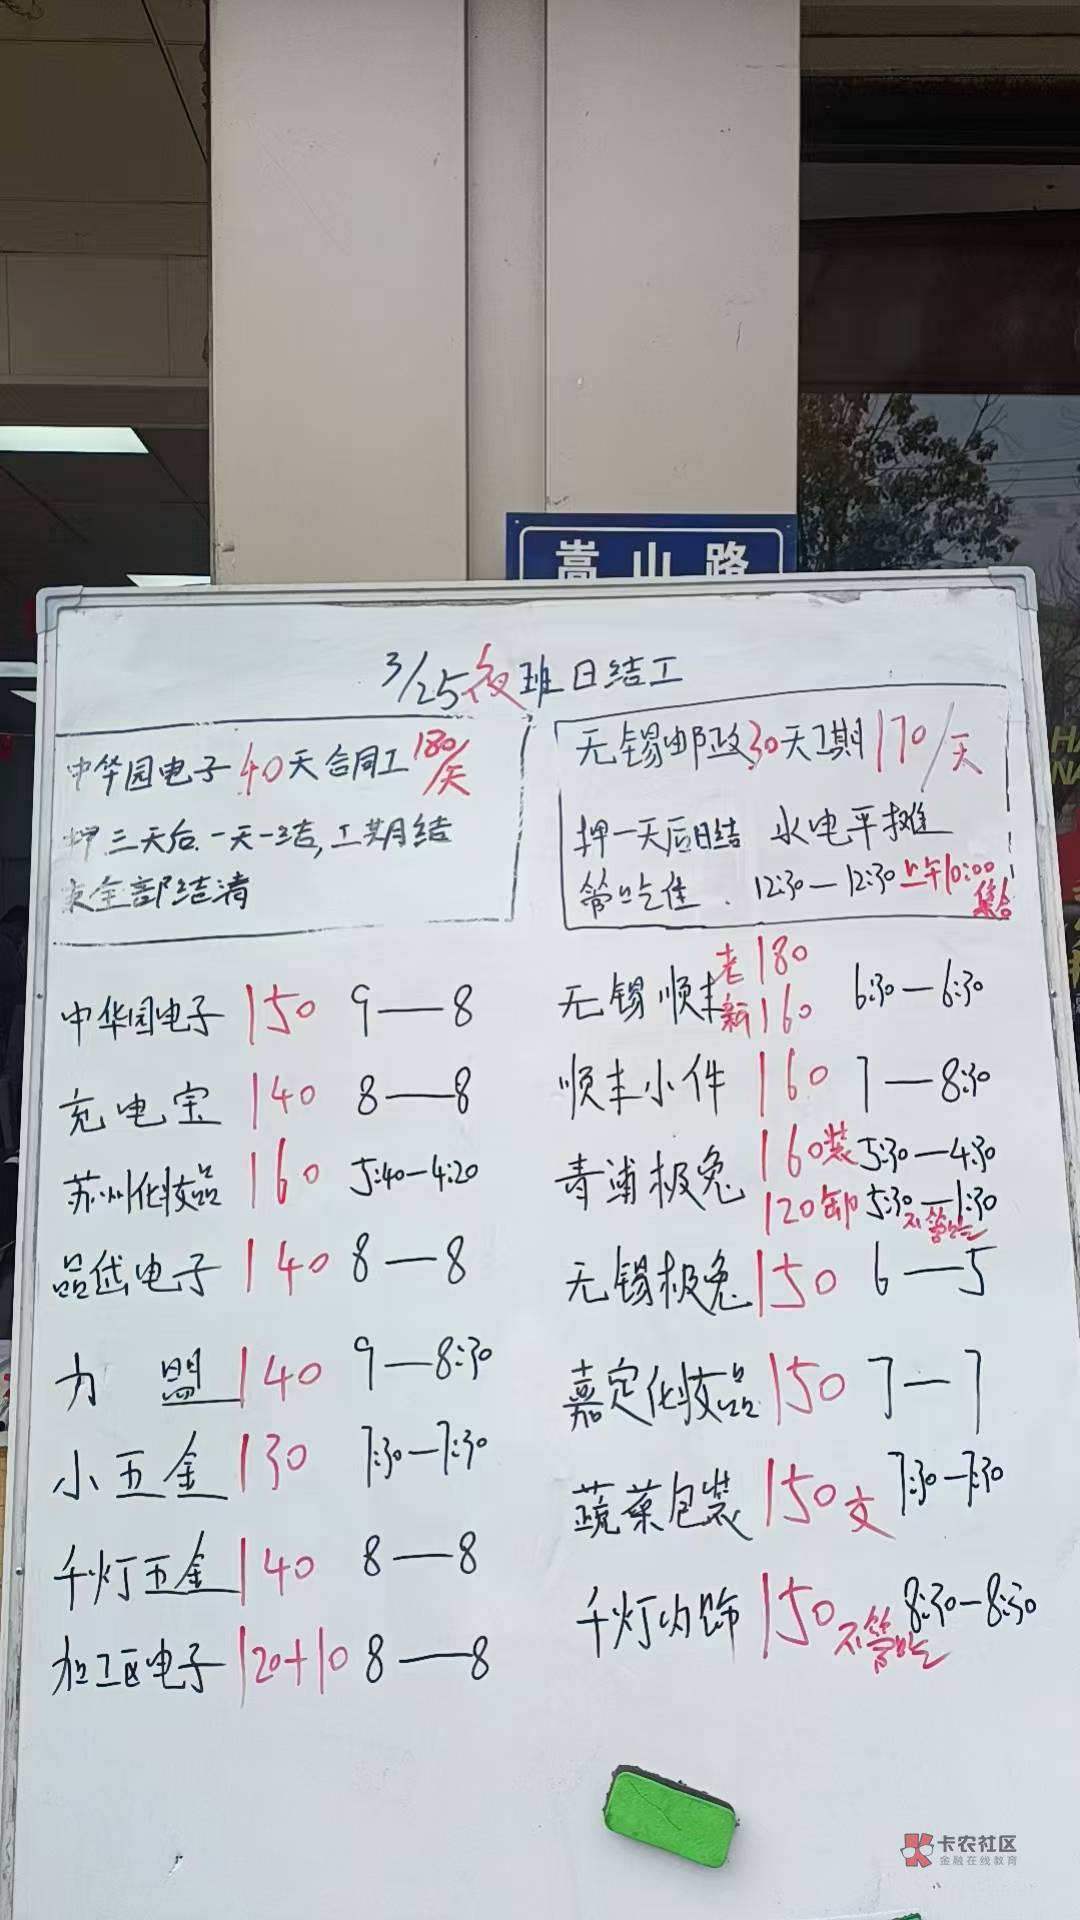 嵩山路
3/25夜班日结工
中华园电子40天合同工180/天
押三天后一天一结,工期结
束全部结清
无锡邮政30天工期170/天
押一天后日结 水电平摊
管吃住 12:30—12:30上午10:00
集合
中华园电子 150 9—8
充电宝 140 8—8
苏州化妆品 160 5:40—4:20
品岱电子 140 8—8
力盟 140 9—8:30
小五金 130 7:30—7:30
千灯五金 140 8—8
加工区电子 120+10 8—8
无锡顺丰 老180 新160 6:30—6:30
顺丰小件 160 7—8:30
青浦极兔 160装 5:30—4:30
120卸 5:30—1:30
不管吃
无锡极兔 150 6—5
嘉定化妆品 150 7—7
蔬菜包装 150女 7:30—7:30
千灯内饰 150 不管吃 8:30—8:30
卡农社区
金融在线教育